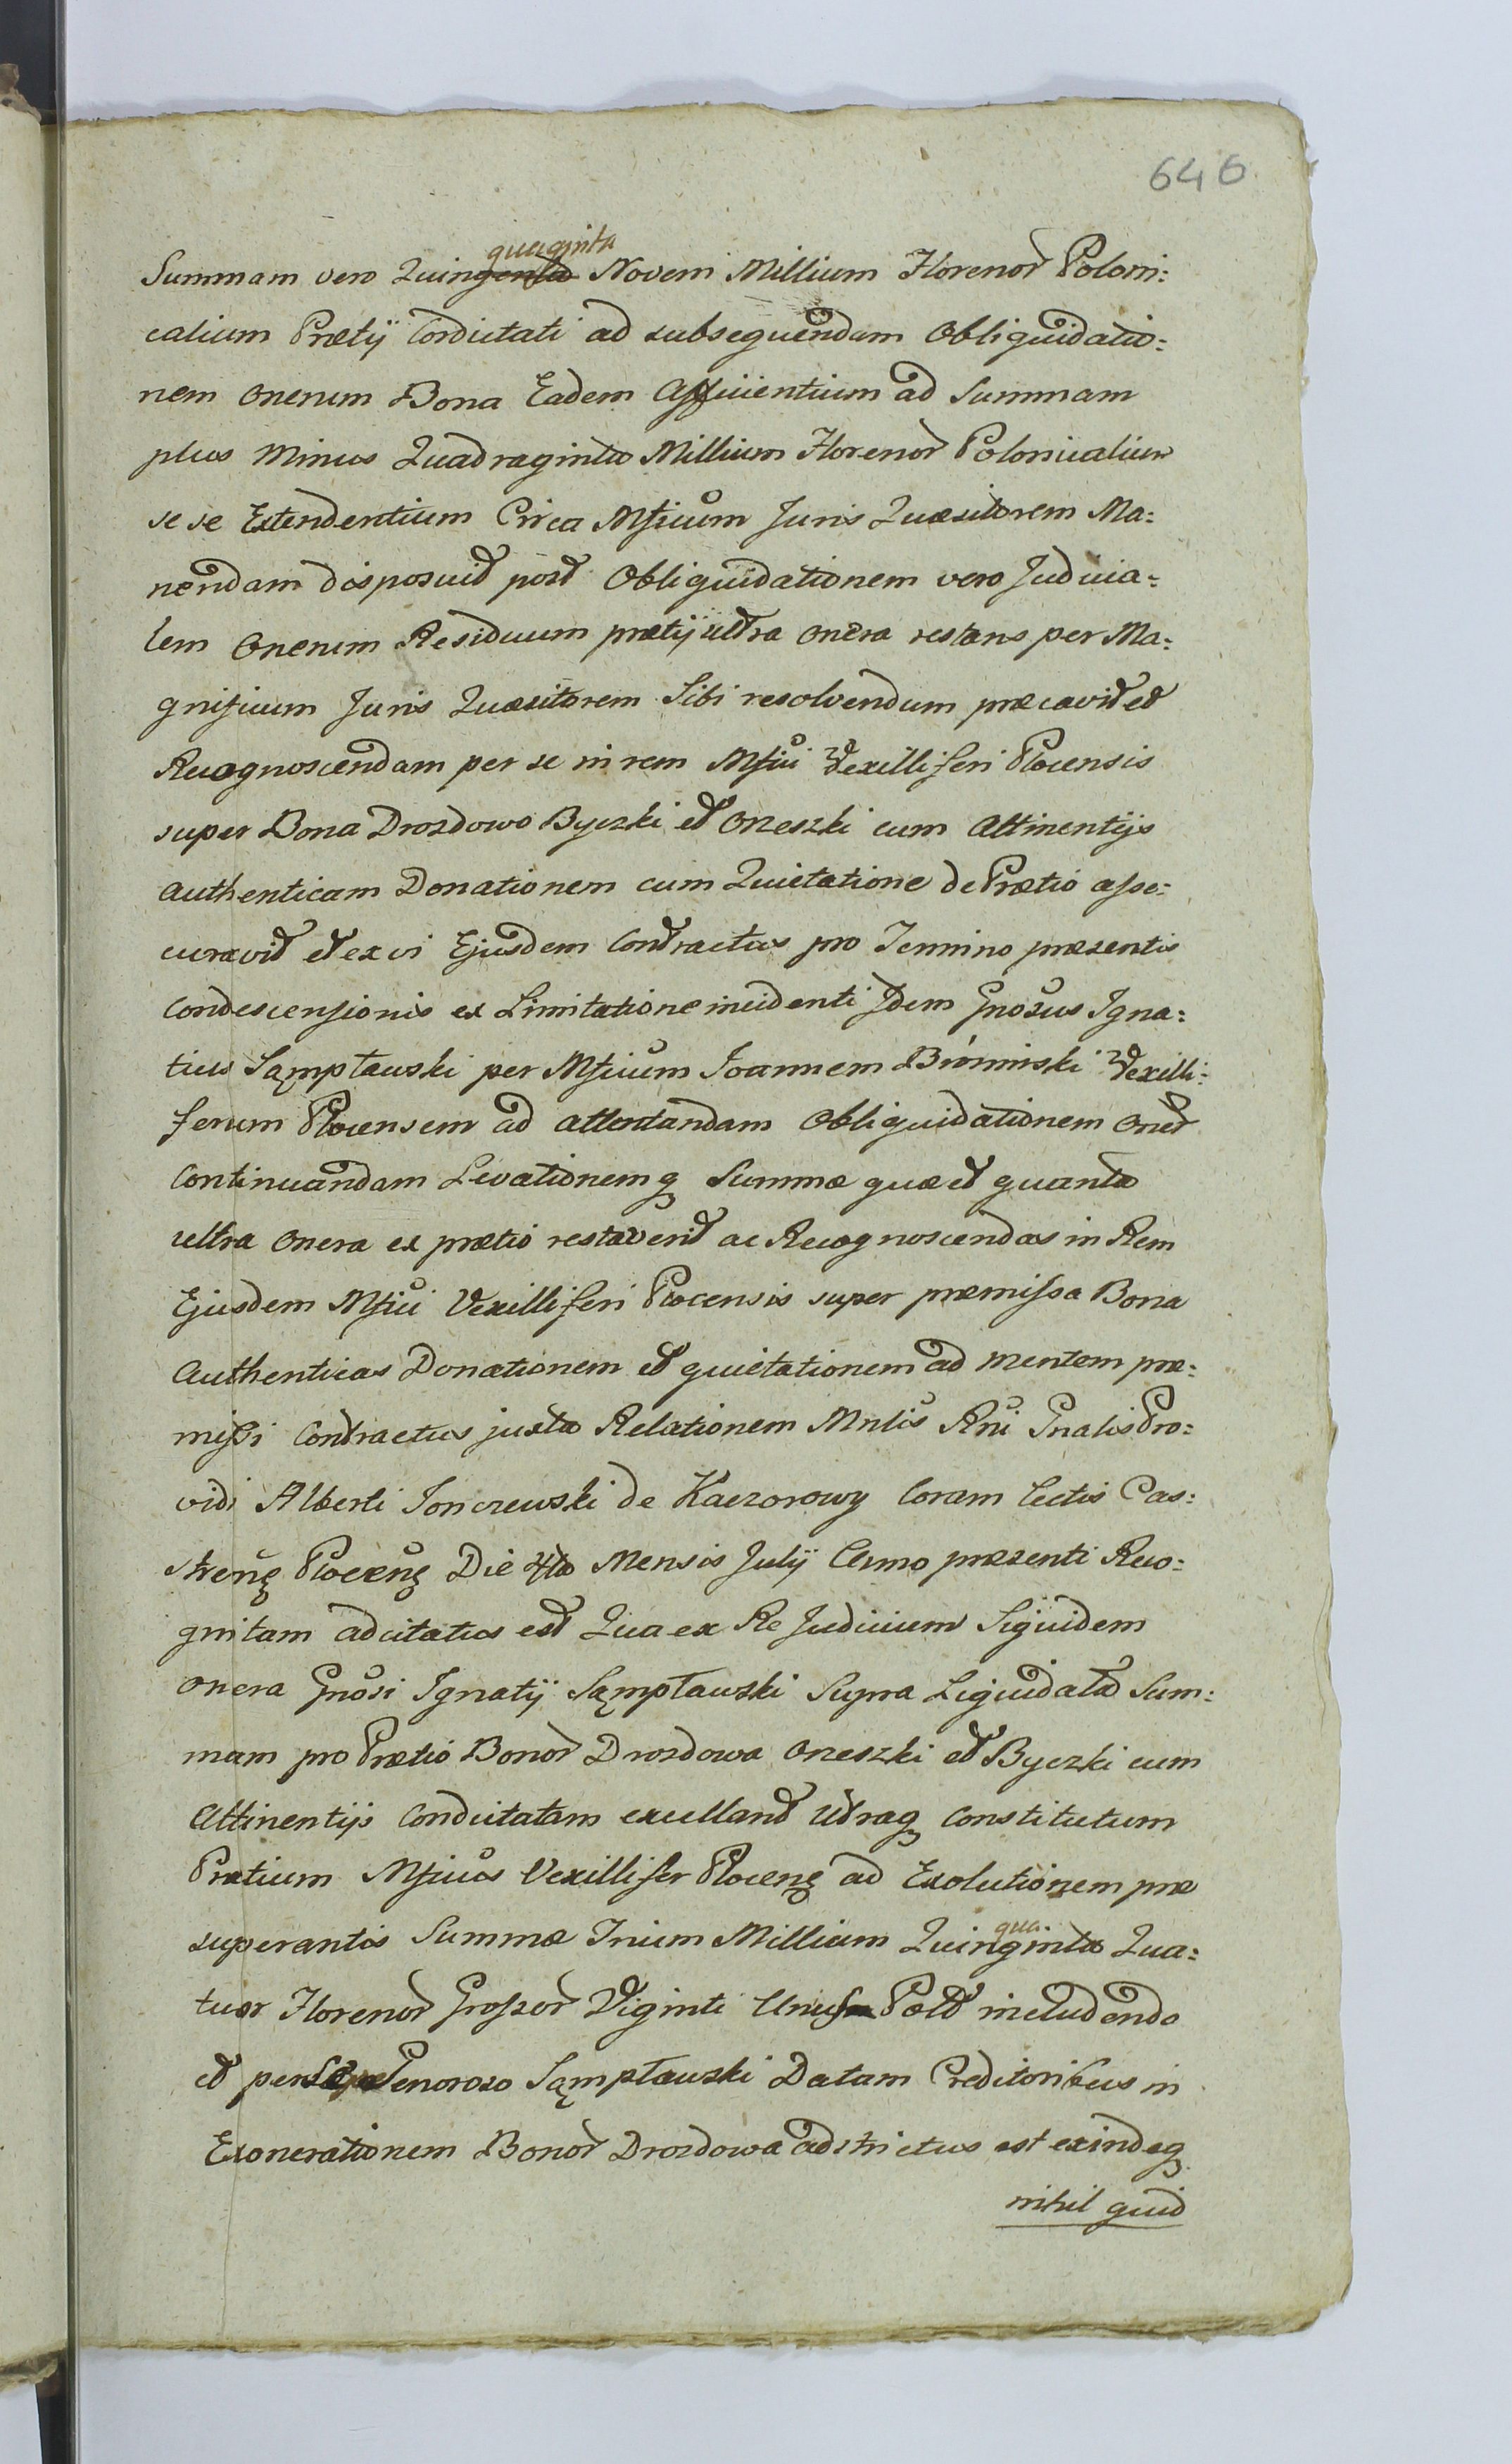 646
quaginta
Summam vero Quingenta Novem Millium Florenor Poloni:
calium Prætij Condictati ad subsequendam Obliquidatio:
nem onerum Bona Eadem afficientium ad Summam
plus minus Quadraginta Millium Florenor Polonicalium
se se Extendentium Circa Mficum Juris Quæsitorem Ma:
nendam disposuit post Obliquidationem vero Judicia:
lem Onerum Residuum prætij ultra onera restans per Ma:
gnificum Juris Quæsitorem Sibi resolvendum præcavit et
Recognoscendam per se in rem Mfici Vexilliferi Plocensis
super Bona Drozdowo Byczki et Orzeszki cum Attinentijs
authenticam Donationem cum Quietatione de Prætio asse:
curavit et ex vi Ejusdem Contractus pro Termino præsentis
Condescensionis ex Limitatione incidenti Idem Gnosus Igna:
tius Sąmpławski per Mficum Joannem Bromirski Vexilli:
ferum Plocensem ad attentandam Obliquidationem Oner
Continuandam Levationemq Summæ quæ et quanta
ultra onera ex prætio restaverit ac Recognoscendas in Rem
Ejusdem Mfici Vexilliferi Plocensis super præmissa Bona
Authenticas Donationem et quietationem ad mentem præ:
missi Contractus juxta Relationem Mnlis Rni Gnalis Pro:
vidi Alberti Jonczewski de Kaczorowy Coram Actis Cas:
Stren Plocen Die 4ta Mensis Julij Anno præsenti Reco:
gnitam adcitatus est Qua ex Re Judicium Siquidem
onera Gnosi Ignatij Sąmpławski Supra Liquidata Sum:
mam pro Prætio Bonor Drozdowa Orzeszki et Byczki cum
Attinentijs Condictatam excellant Utraq constitutum
Prætium Mficus Vexillifer Plocen ad Exolutionem præ
qua
superantis Summæ Trium Millium Quinginta Qua:
tuor Florenor Grossor Viginti Unius Pold includendo
et per Generoso Sąmpławski Datam Creditoribus in
Exonerationem Bonor Drozdowa adstrictus est exindeq
nihil quid